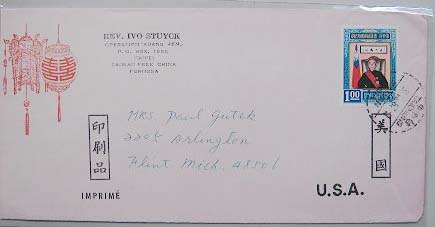 REV. IVO STUYCK
P. O. BOX,
TAIPEI
TAIWAN-FREE CHINA
FORMOSA
1.00
Mrs Paul Gutek
2205 Arlington
Flint Mich.
印刷品
美國
IMPRIMÉ
U.S.A.